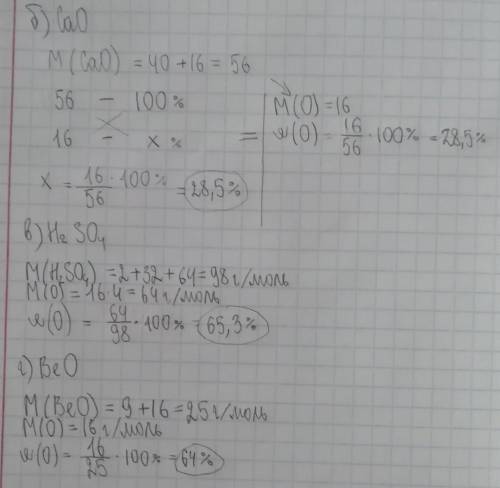 б) CaO
M(CaO) = 40 + 16 = 56
56 – 100%
16 – x %
x = 16/56 · 100% = 28,5%
= M(O) = 16
w(O) = 16/56 · 100% = 28,5%
в) H₂SO₄
M(H₂SO₄) = 2 + 32 + 64 = 98 г/моль
M(O) = 16·4 = 64 г/моль
w(O) = 64/98 · 100% = 65,3%
г) BeO
M(BeO) = 9 + 16 = 25 г/моль
M(O) = 16 г/моль
w(O) = 16/25 · 100% = 64%